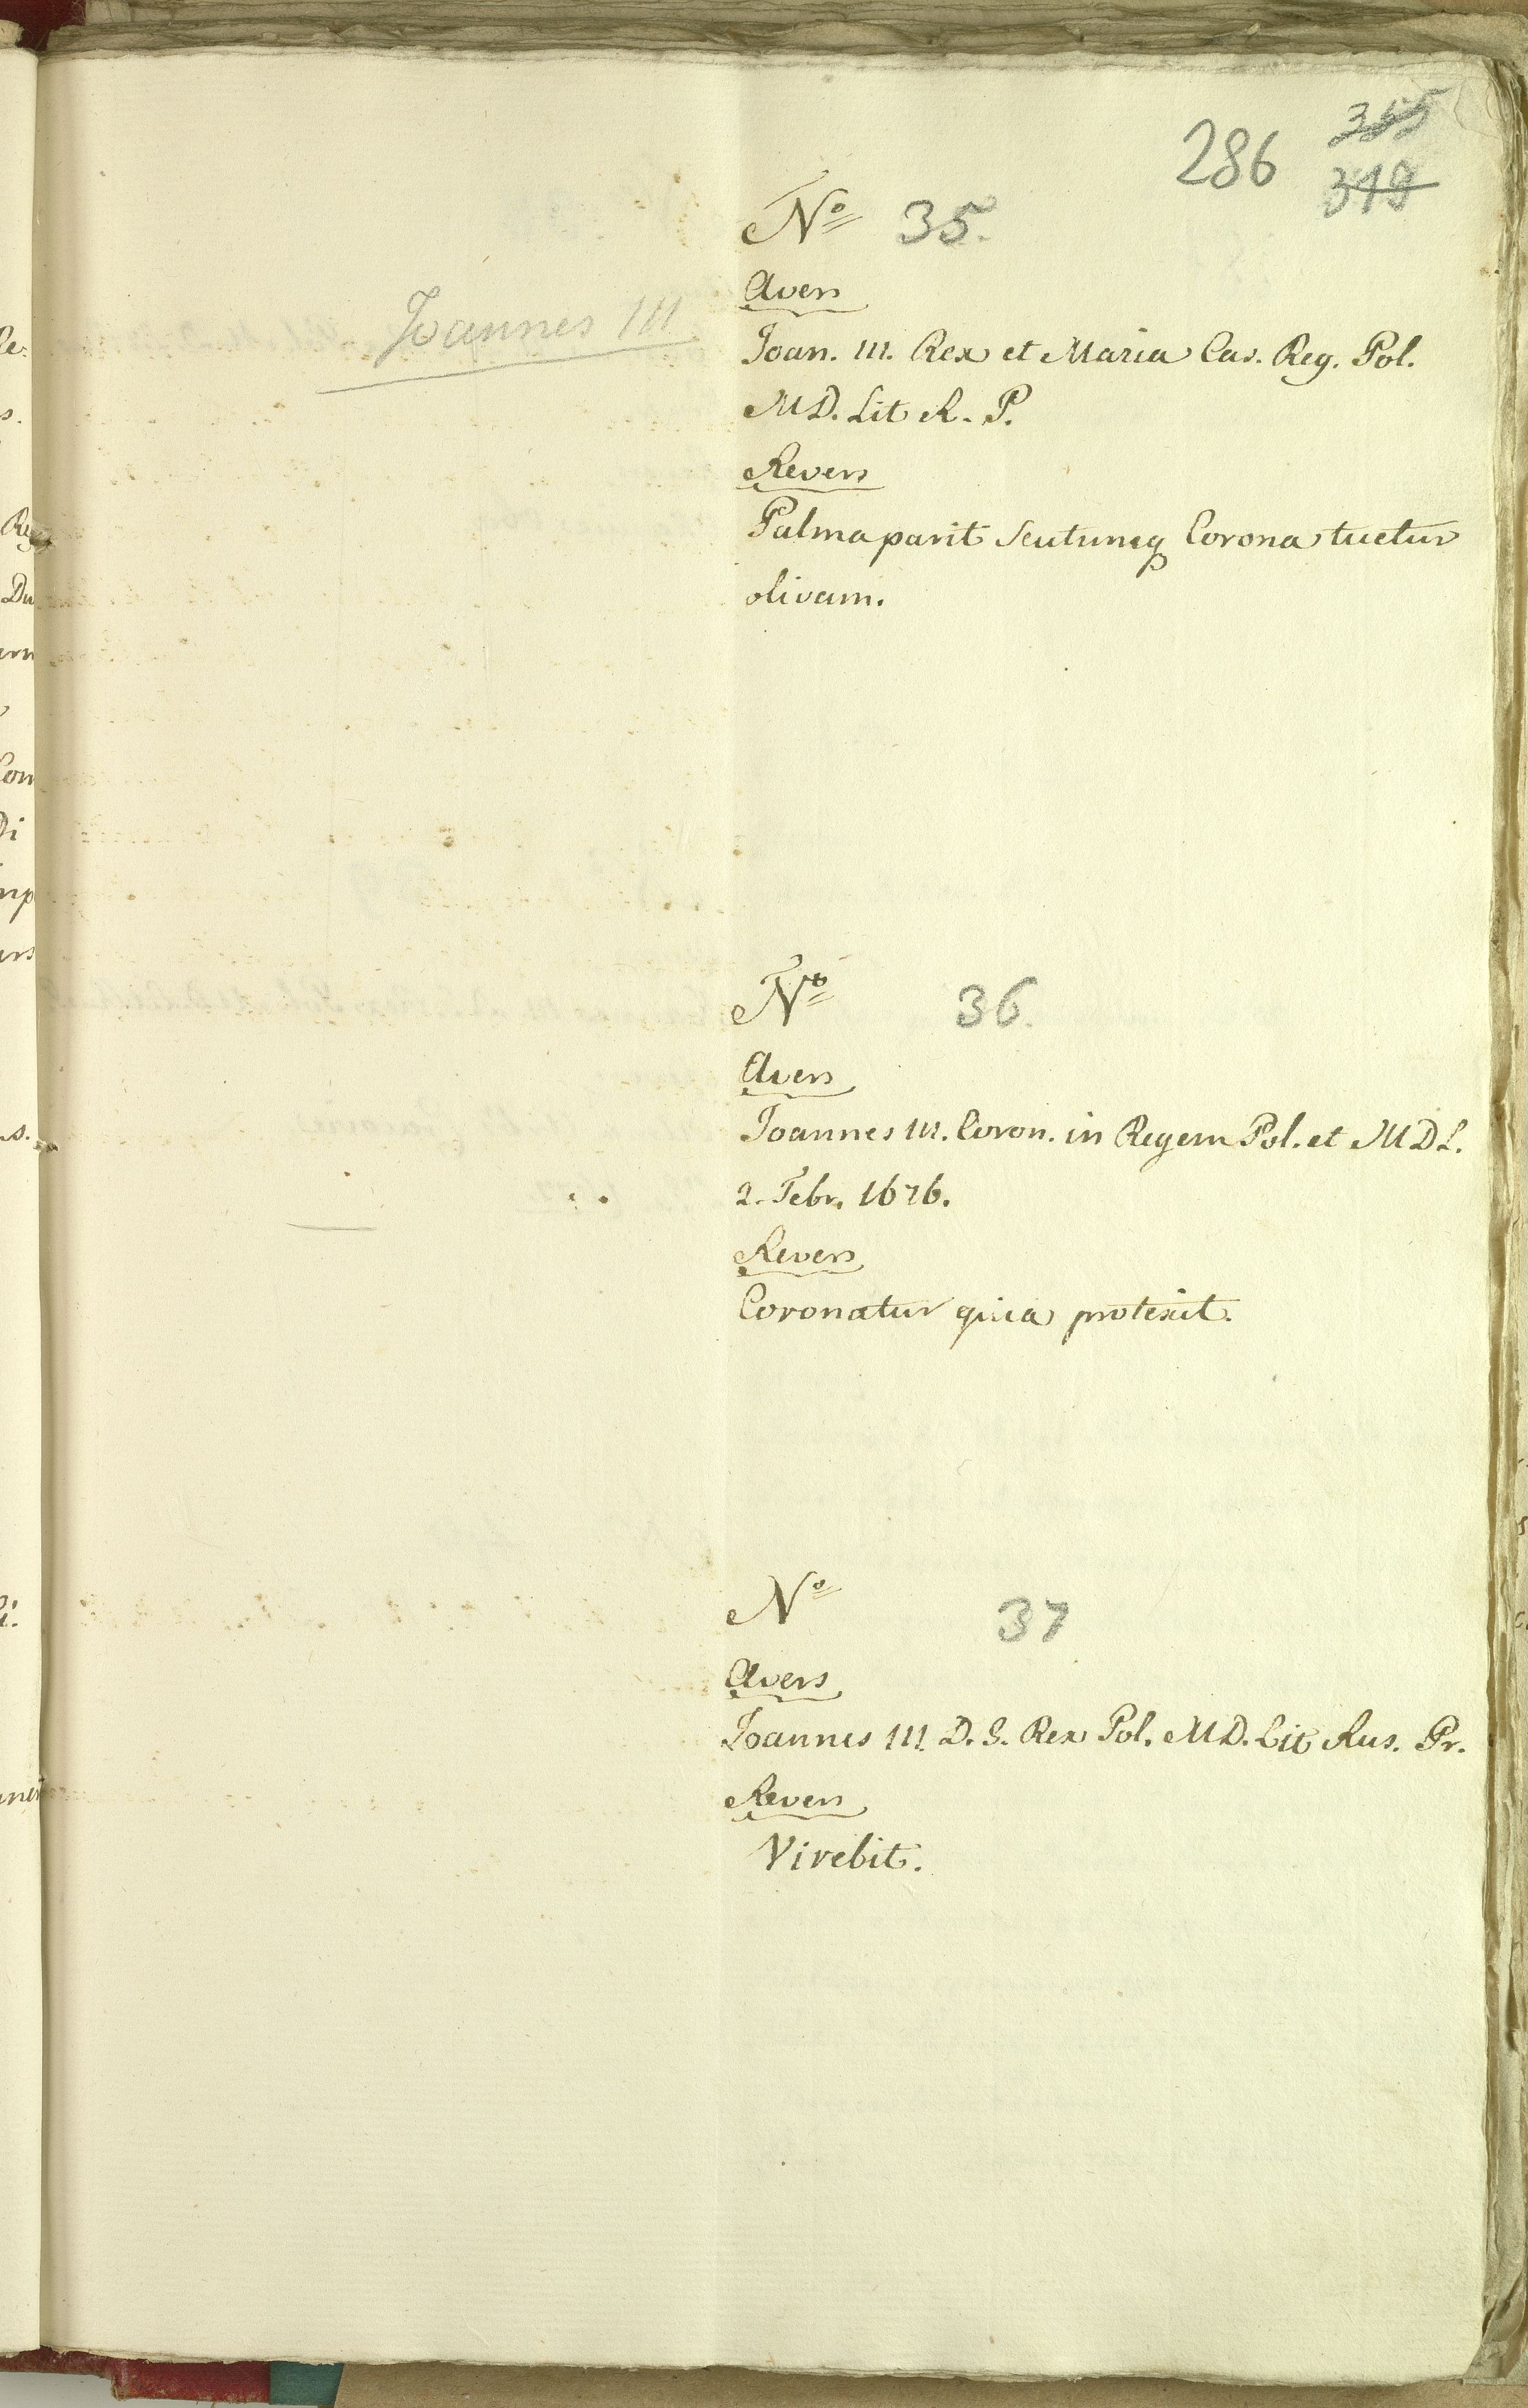 286 355
349
Nº 35.
Joannes III
Avers
Joan. III. Rex et Maria Cas. Reg. Pol.
MD. Lit R. P.
Revers
Palma parit Scutumq Corona tuetur
olivam.
Nº 36.
Avers
Joannes III. Coron. in Regem Pol. et MDL.
2. Febr. 1676.
Revers
Coronatur quia protexit.
Nº 37
Avers
Joannes III. D. G. Rex Pol. MD. Lit Rus. Pr.
Revers
Virebit.